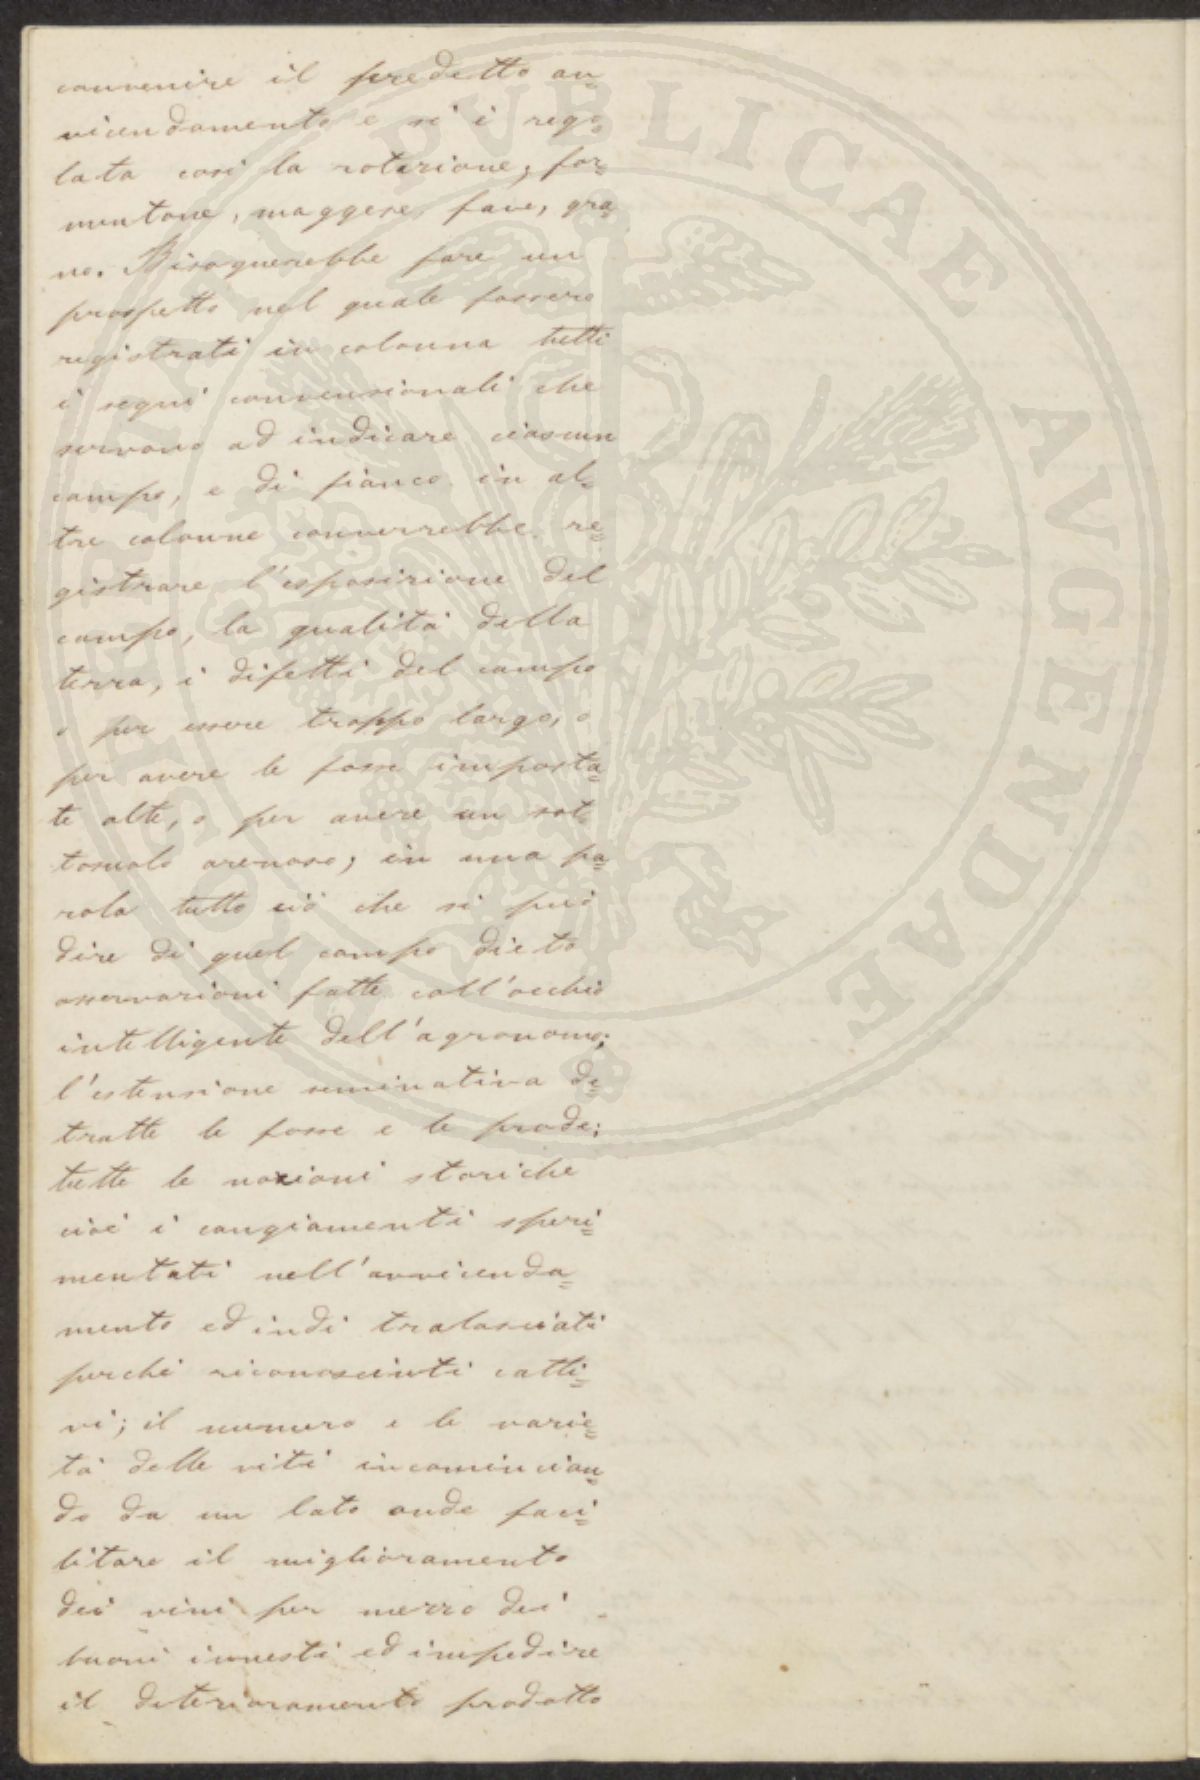 convenire il predetto av=
vicendamento e si è rego=
lata così la rotazione, for=
mentone, maggese, fave, gra=
no. Bisognerebbe fare un
prospetto nel quale fossero
registrati in colonna tutti
i segni convensionali che
servono ad indicare ciascun
campo, e di fianco in al=
tre colonne converrebbe re=
gistrare l'esposizione del
campo, la qualità della
terra, i difetti del campo
o per essere troppo largo, o
per avere le fosse imposta=
te alte, o per avere un sot=
tosuolo arenoso; in una pa=
rola tutto ciò che si può
dire di quel campo dietro
osservazioni fatte coll'occhio
intelligente dell'agronomo;
l'estensione seminativa de=
tratte le fosse e le prode;
tutte le nozioni storiche
cioè i cangiamenti speri=
mentati nell'avvicenda=
mento ed indi tralasciati
perchè riconosciuti catti=
vi; il numero e le varie=
tà delle viti incomincian=
do da un lato onde faci=
litare il miglioramento
dei vini per mezzo dei
buoni innesti ed impedire
il deterioramento prodotto
PUBLICAE AVGENDAE